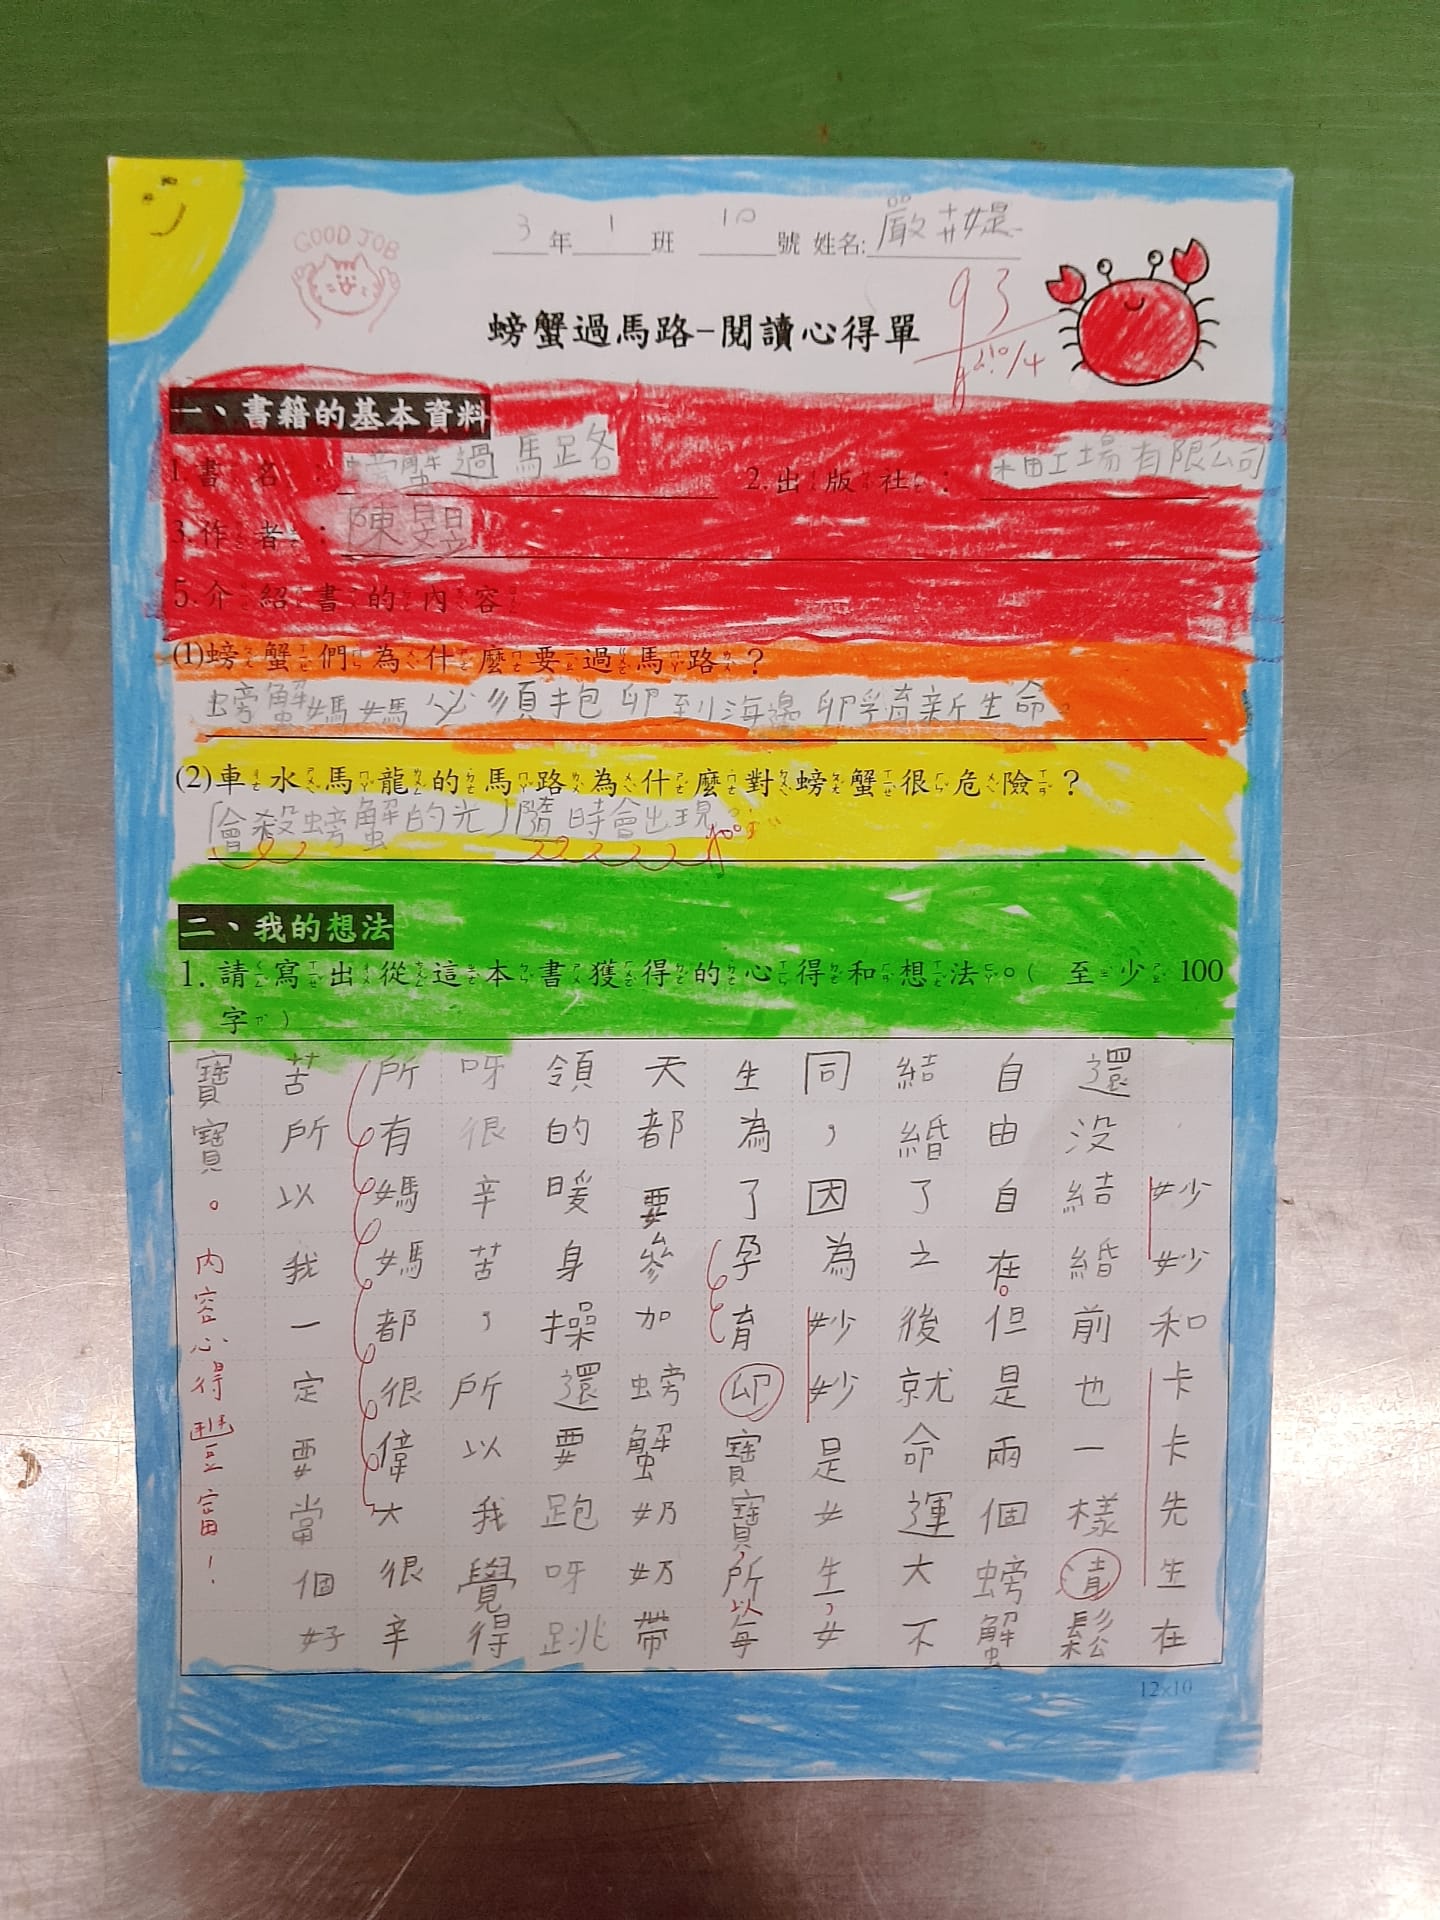 GOOD JOB
3年1班 10號 姓名:嚴
93
10/4
螃蟹過馬路-閱讀心得單
一、書籍的基本資料
1.書名:螃蟹過馬路 2.出版社:木田工場有限公司
3.作者:陳旻昱
5.介紹書的內容
(1)螃蟹們為什麼要過馬路?
螃蟹媽媽必須抱卵到海邊卵孵育新生命。
(2)車水馬龍的馬路為什麼對螃蟹很危險?
「會殺螃蟹的光」隨時會出現。
二、我的想法
1.請寫出從這本書獲得的心得和想法。(至少100
字)
妙妙和卡卡先生在
還沒結婚前也一樣清鬆
自由自在。但是兩個螃蟹
結婚了之後就命運大不
同,因為妙妙是女生,女
生為了孕育卵寶寶,所以每
天都要參加螃蟹奶奶帶
領的暖身操還要跑呀跳
呀很辛苦,所以我覺得
所有媽媽都很偉大很辛
苦所以我一定要當個好
寶寶。
內容心得豐富!
12x10